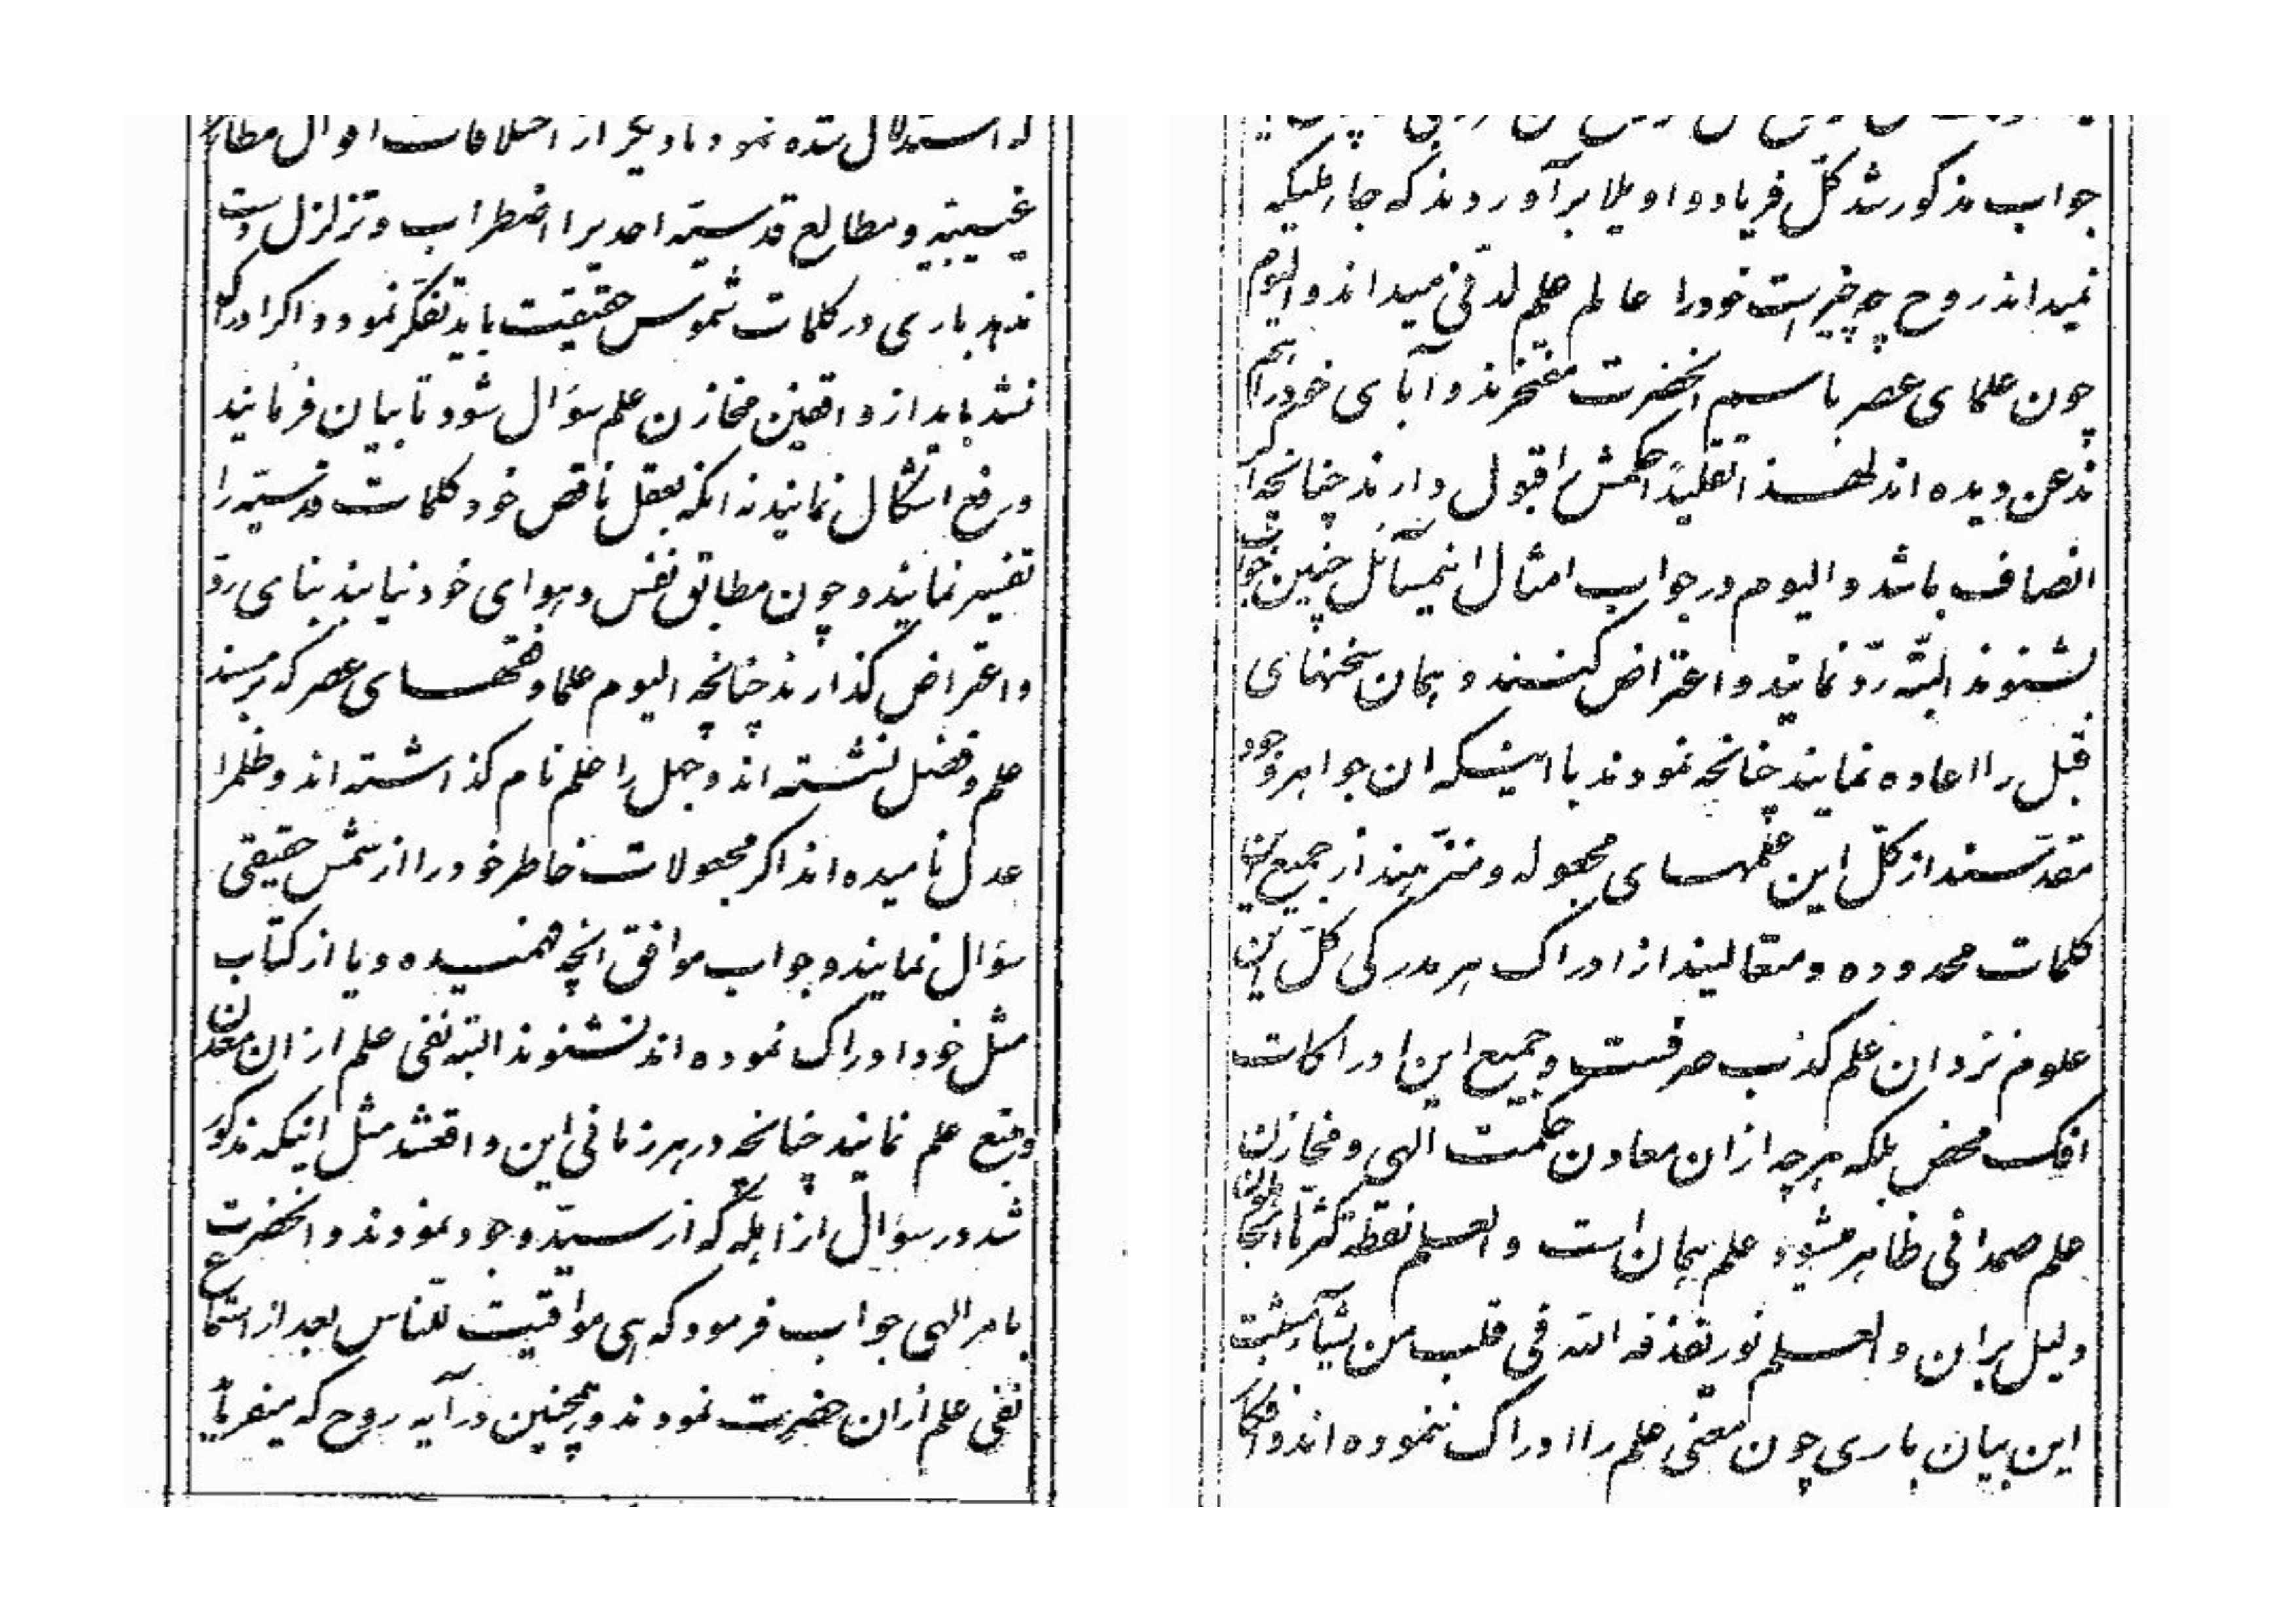 که استدلال شده نمود تا دیگر از اختلافات اقوال مظاهر
غیبیّه و مطالع قدسیّه احدیرا اضطراب و تزلزل دست
ندهد باری در کلمات شموس حقیقت باید تفکّر نمود و اگر ادراک
نشد باید از واقفین مخازن علم سؤال شود تا بیان فرمایند
و رفع اشکال نمایند نه انکه بعقل ناقص خود کلمات قدسیّه را
تفسیر نمایند و چون مطابق نفس و هوای خود نیابند بنای ردّ
و اعتراض گذارند چنانچه الیوم علما و فقهای عصر که بر مسند
علم و فضل نشسته اند و جهل را علم نام گذاشته اند و ظلمرا
عدل نامیده اند اگر مجعولات خاطر خود را از شمس حقیقی
سؤال نمایند و جواب موافق انچه فهمیده و یا از کتاب
مثل خود ادراک نموده اند نشنوند البته نفی علم از ان معدن
و منبع علم نمایند چنانچه در هر زمانی این واقعشد مثل اینکه مذکور
شد در سؤال از اهلّه که از سیّد وجود نمودند و انحضرت
بامر الهی جواب فرمود که هی مواقیت للنّاس بعد از استماع
نفی علم از ان حضرت نمودند و همچنین در آیه روح که میفرماید
جواب مذکور شد کلّ فریاد واویلا برآوردند که جاهلیکه
نمیداند روح چه چیز است خود را عالم علم لدنّی میداند و الیوم
چون علمای عصر باسم انحضرت مفتخرند و آبای خود را هم
مذعن دیده اند لهذا تقلیداً حکمش را قبول دارند چنانچه اگر
انصاف باشد و الیوم در جواب امثال اینمسائل چنین جواب
بشنوند البتّه ردّ نمایند و اعتراض کنند و همان سخنهای
قبل را اعاده نمایند چنانچه نمودند با اینکه ان جواهر وجود
مقدّسند از کلّ این علمهای مجعوله و منزّهند از جمیع این
کلمات محدوده و متعالیند از ادراک هر مدرکی کلّ این
علوم نزد ان علم کذب صرفست و جمیع این ادراکات
افک محض بلکه هر چه از ان معادن حکمت الهی و مخازن
علم صمدانی ظاهر میشود علم همان است و العلم نقطة کثّرها الجاهلون
دلیل بر ان و العلم نور یقذفه اللّه فی قلب من یشاء مثبت
این بیان باری چون معنی علم را ادراک ننموده اند و افکار